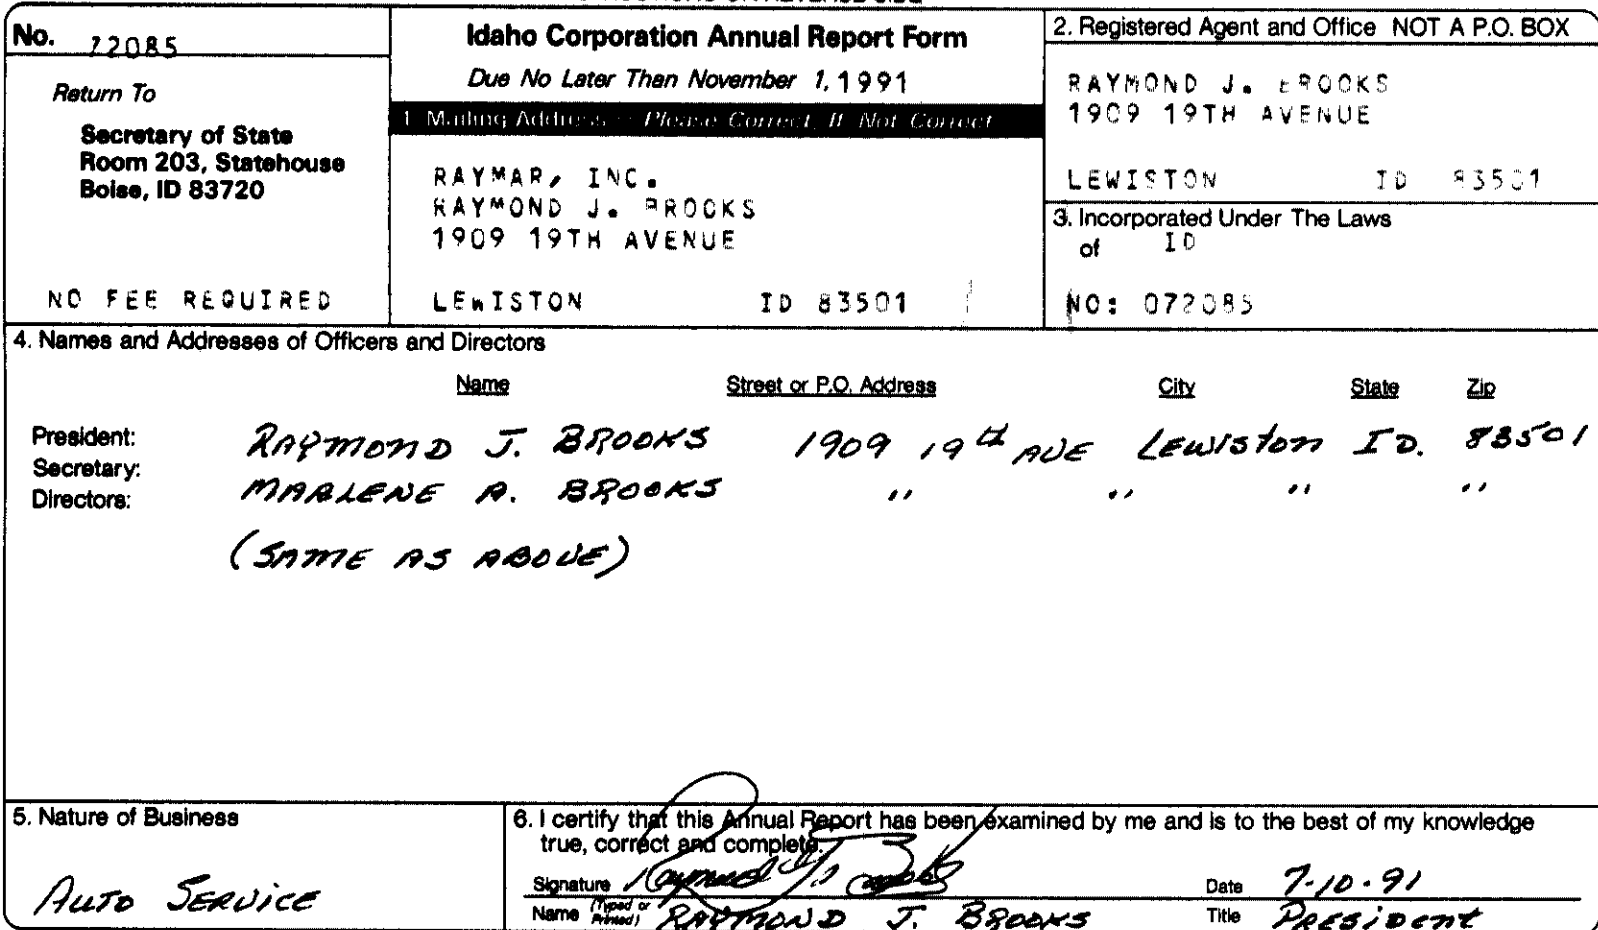 No. 72085
Return To
Secretary of State
Room 203, Statehouse
Boise, ID 83720
NO FEE REQUIRED
Idaho Corporation Annual Report Form
Due No Later Than November 1, 1991
1. Mailing Address - Please Correct, If Not Correct
RAYMAR, INC.
RAYMOND J. BROOKS
1909 19TH AVENUE
LEWISTON ID 83501
2. Registered Agent and Office NOT A P.O. BOX
RAYMOND J. BROOKS
1909 19TH AVENUE
LEWISTON ID 83501
3. Incorporated Under The Laws
of ID
NO: 072085
4. Names and Addresses of Officers and Directors
Name Street or P.O. Address City State Zip
President: RAYMOND J. BROOKS 1909 19th AVE Lewiston ID. 83501
Secretary: MARLENE A. BROOKS " " " "
Directors:
(SAME AS ABOVE)
5. Nature of Business
AUTO SERVICE
6. I certify that this Annual Report has been examined by me and is to the best of my knowledge
true, correct and complete.
Signature Raymond J. Brooks Date 7-10-91
Name (Typed or Printed) RAYMOND J. BROOKS Title PRESIDENT